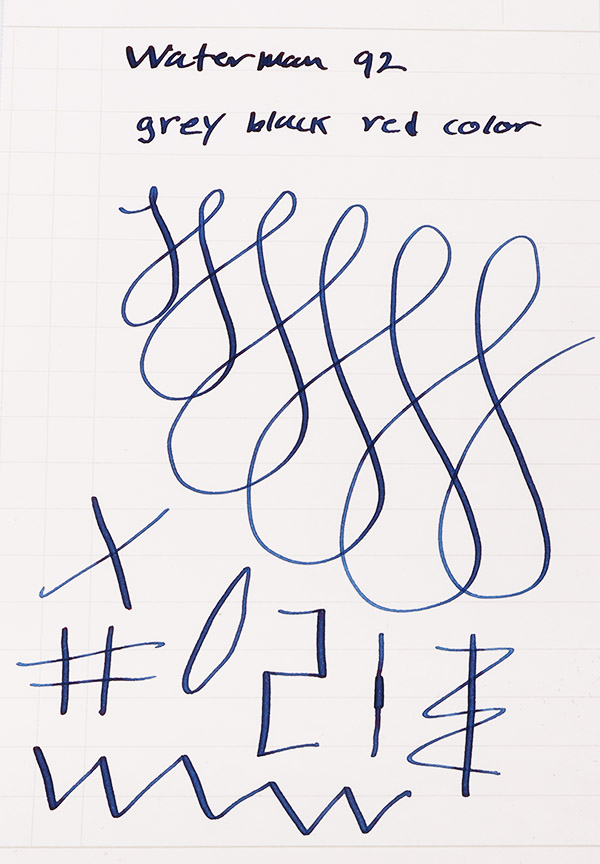 Waterman 92
grey black red color